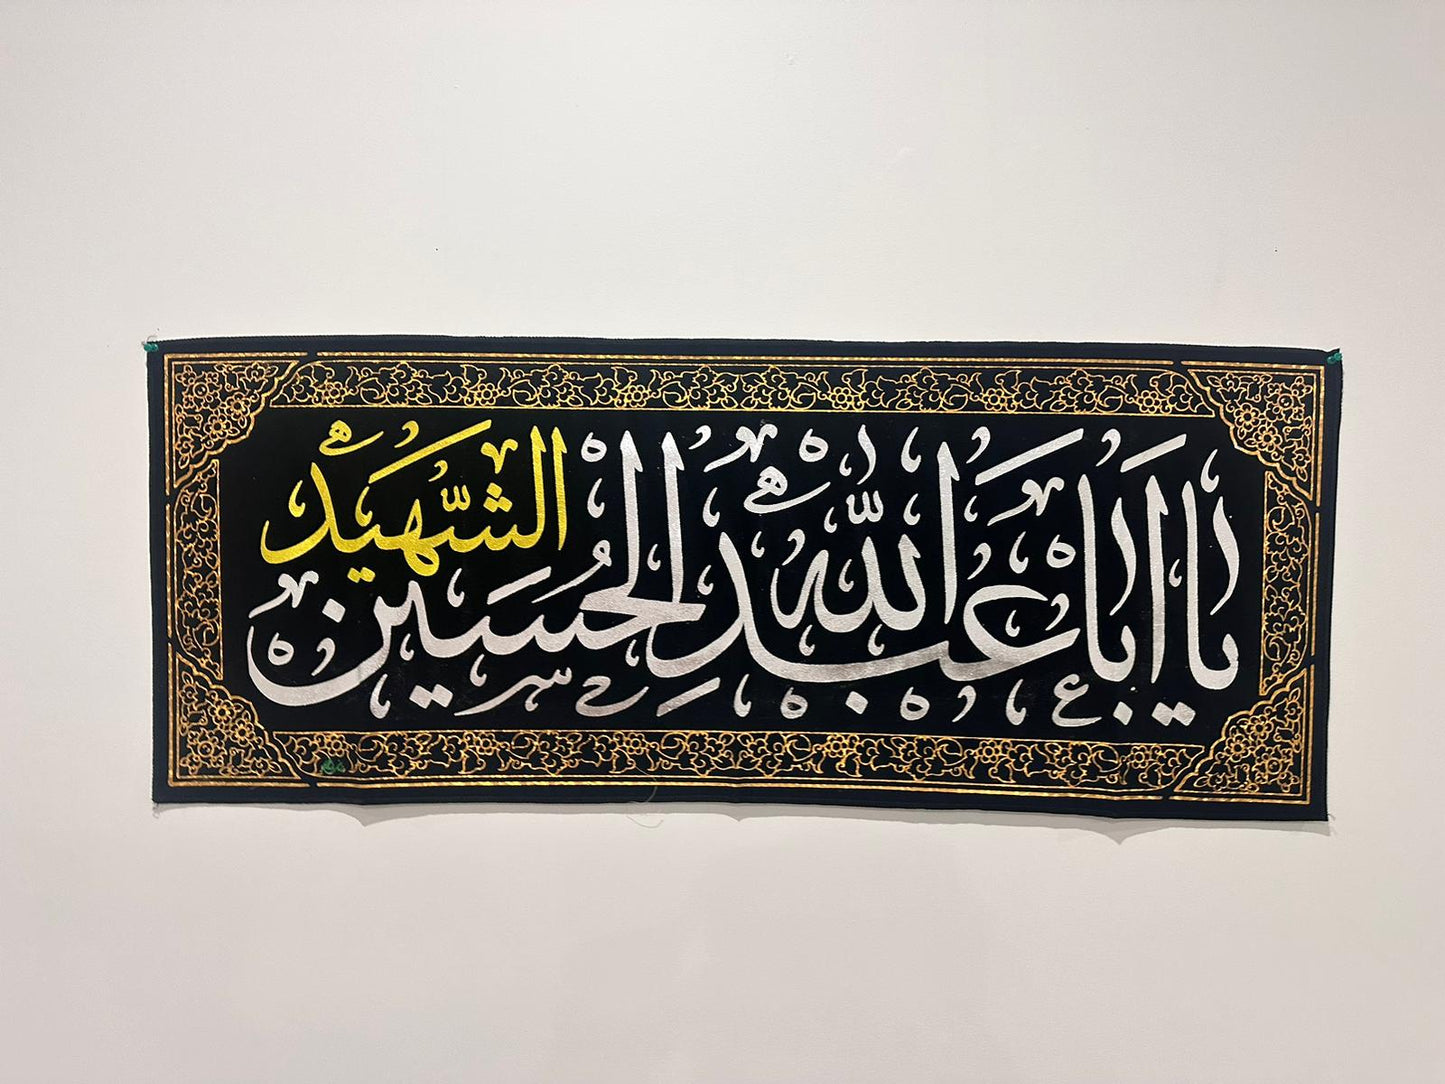 يا اباعبدالله الحسين الشهيد